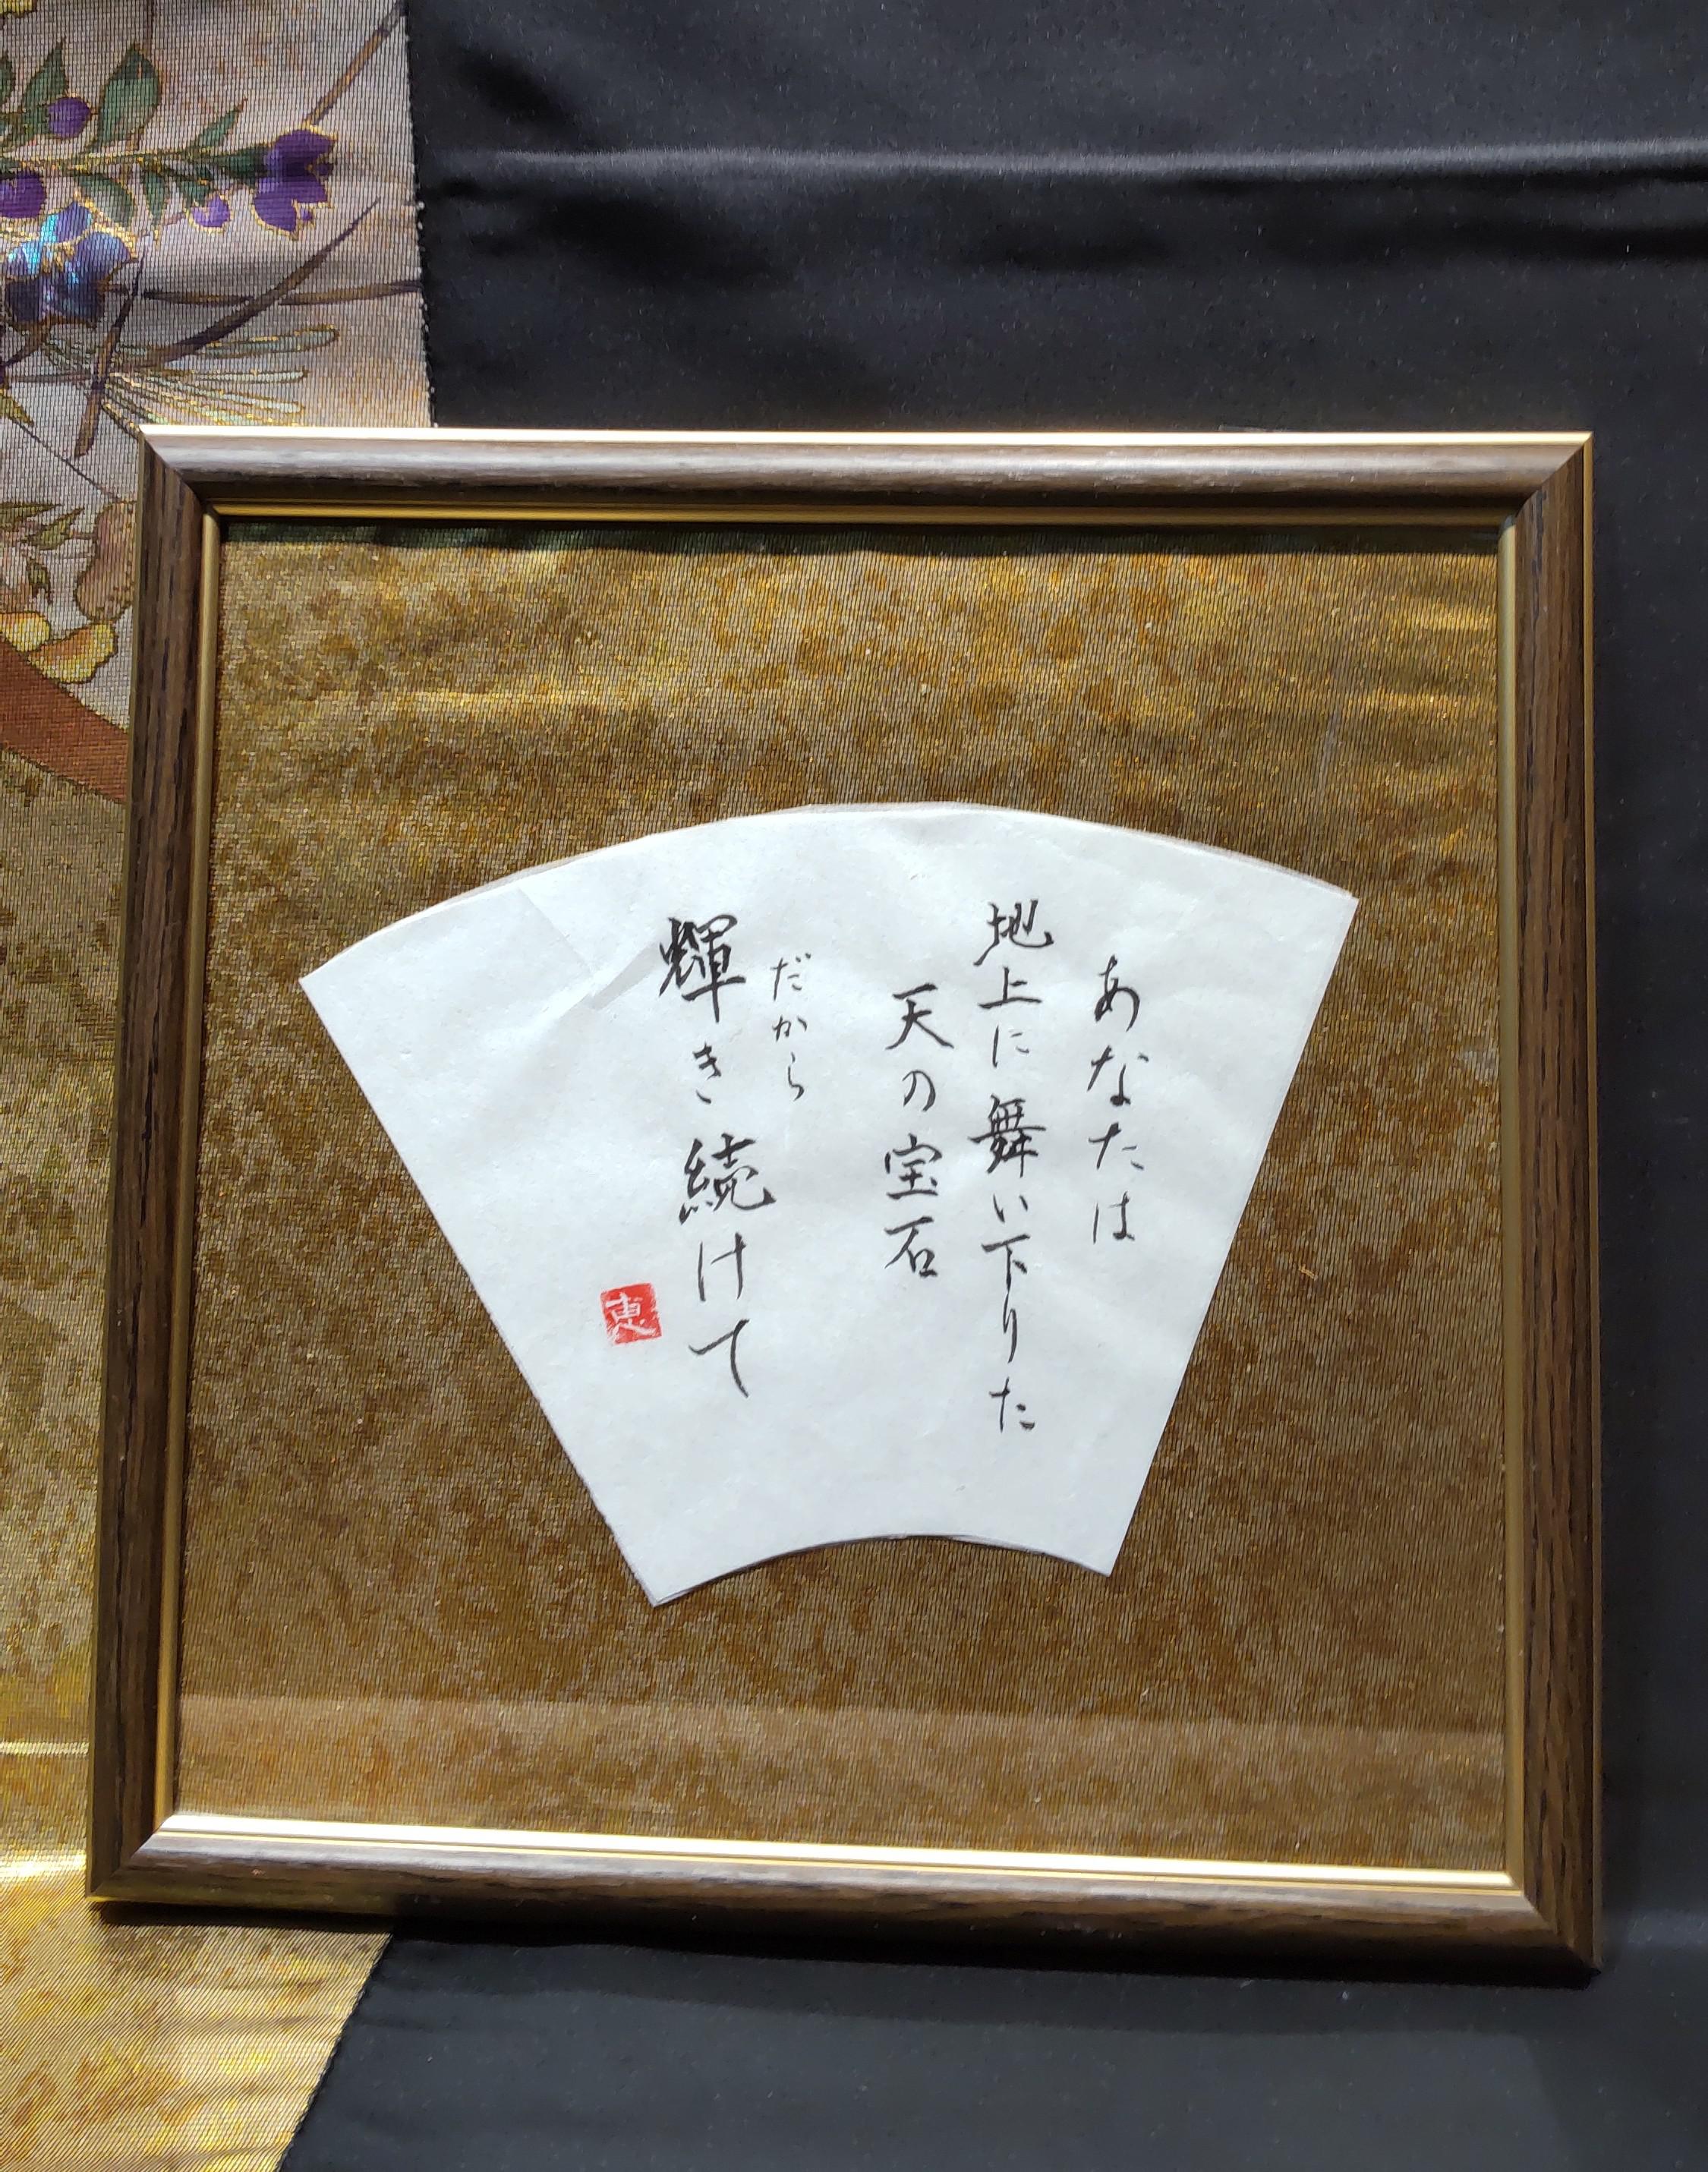 あなたは
地上に舞い下りた
天の宝石
だから
輝き続けて
恵